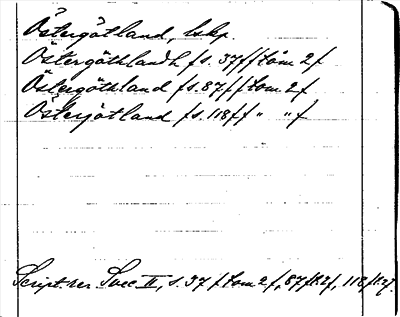 Östergötland, lskp.
Östergöthlandh f s. 37 ff tom 2 f
Östergöthland f s. 87 ff tom 2 f
Österjötland f s. 118 f f " " f
Script. rer. Svec. II, s. 37 f tom 2 f, 87 f 12 f, 118 f